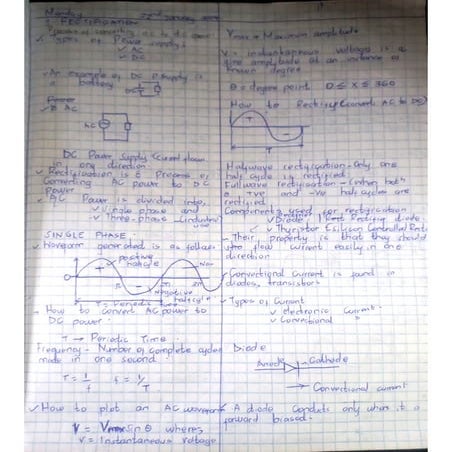 Monday
22nd January
RECTIFICATION
Process of converting ac to dc
Types of Power supply
✓ AC
✓ DC
✓ An example of DC p supply is
a battery
AC
DC Power Supply Current flows
in one direction
✓ Rectification is a Process of
Converting AC power to DC
Power
✓ AC Power is divided into,
✓ Single phase and
✓ Three-phase (industries
SINGLE PHASE
✓ Waveform generated is as follows
positive
halfcycle
+
0
π
2π
Negative
halfcycle
T = Periodic time
- How to convert AC power to
DC power.
T → Periodic Time.
Frequency - Number of complete cycles
made in one second.
T = 1/f f = 1/T
✓ How to plot an AC waveform
V = Vmax Sin θ where
V = Instantaneous Voltage
Vmax = Maximum amplitude
V = instantaneous voltage is a
the amplitude at an instance or
known degree
θ = degree point 0 ≤ x ≤ 360
How to Rectify (Convert AC to DC)
+
-
Halfwave rectification - Only one
half cycle is rectified
Fullwave rectification - (when both
+ve and -ve half cycles are
rectified
Components for rectification
✓ Diode
✓ Thyristor (Silicon Controlled Recti
- Their property is that they should
flow current easily in one
direction
- Conventional Current is found in
diodes, transistors
✓ Types of Current
✓ electronic current
✓ Conventional
Diode
Anode
Cathode
→ Conventional current
✓ A diode Conducts only when it is
forward biased.